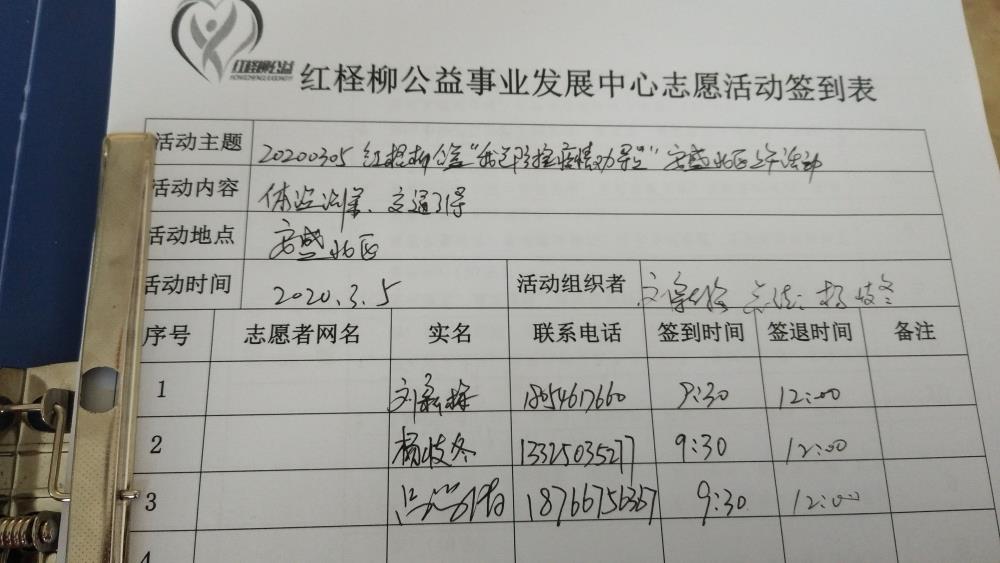 红柽柳公益
红柽柳公益事业发展中心志愿活动签到表
活动主题 20200305 红柽柳公益“我为防控疫情功墨” 安盛北区上午活动
活动内容 体温测量、交通引导
活动地点 安盛北区
活动时间 2020.3.5 活动组织者 刘 杨岐冬
序号 志愿者网名 实名 联系电话 签到时间 签退时间 备注
1 刘 18054617660 9:30 12:00
2 杨岐冬 13325035277 9:30 12:00
3 吕 18766756367 9:30 12:00
4